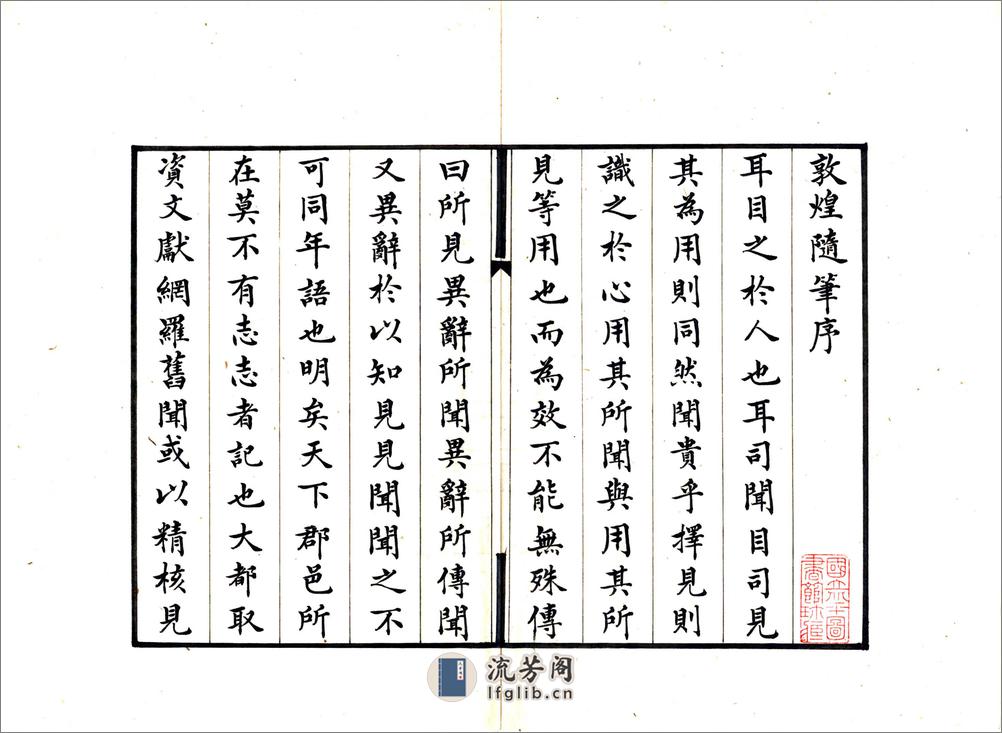 敦煌隨筆序
耳目之於人也耳司聞目司見
其為用則同然聞貴乎擇見則
識之於心用其所聞與用其所
見等用也而為效不能無殊傳
曰所見異辭所聞異辭所傳聞
又異辭於以知見見聞聞之不
可同年語也明矣天下郡邑所
在莫不有志志者記也大都取
資文獻網羅舊聞或以精核見
國立圖
書館珍藏
流芳阁
lfglib.cn